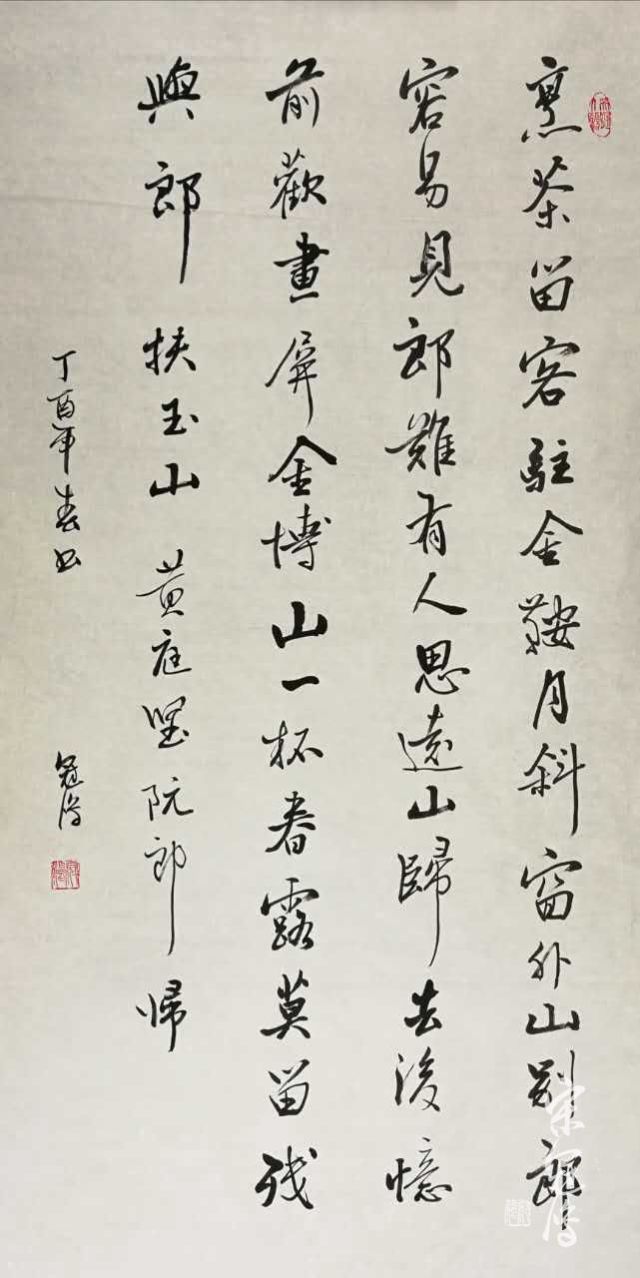 烹茶留客駐金鞍月斜窗外山别郎
容易見郎難有人思遠山歸去後憶
前歡畫屏金博山一杯春露莫留残
與郎扶玉山 黄庭堅阮郎帰
丁酉年春书 冠